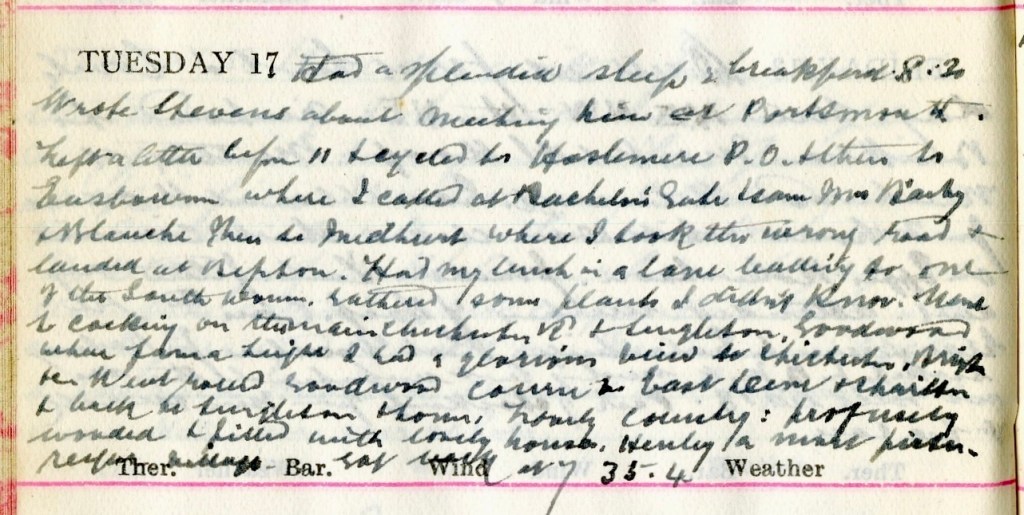 TUESDAY 17 Had a splendid sleep & breakfast 8.20
Wrote Stevens about meeting him at Portsmouth.
Left a letter before 11 & cycled to Haslemere P.O. & then to
Easebourne where I called at Rachelors Gate & saw Mrs
& Blanche Then to Midhurst where I took the wrong road &
landed at Bepton. Had my lunch in a lane leading to one
of the South Downs. Gathered some plants I didn't know. Next
to Cocking on the main Chichester Rd & Singleton, Goodwood
where from a height I had a glorious view to Chichester,
then went round Goodwood course to East Dean & Charlton
& back to Singleton & home. Lovely country: profusely
wooded & filled with lovely houses. Henley a most pictu-
resque village Got back at 7 35.4
Ther. Bar. Wind Weather